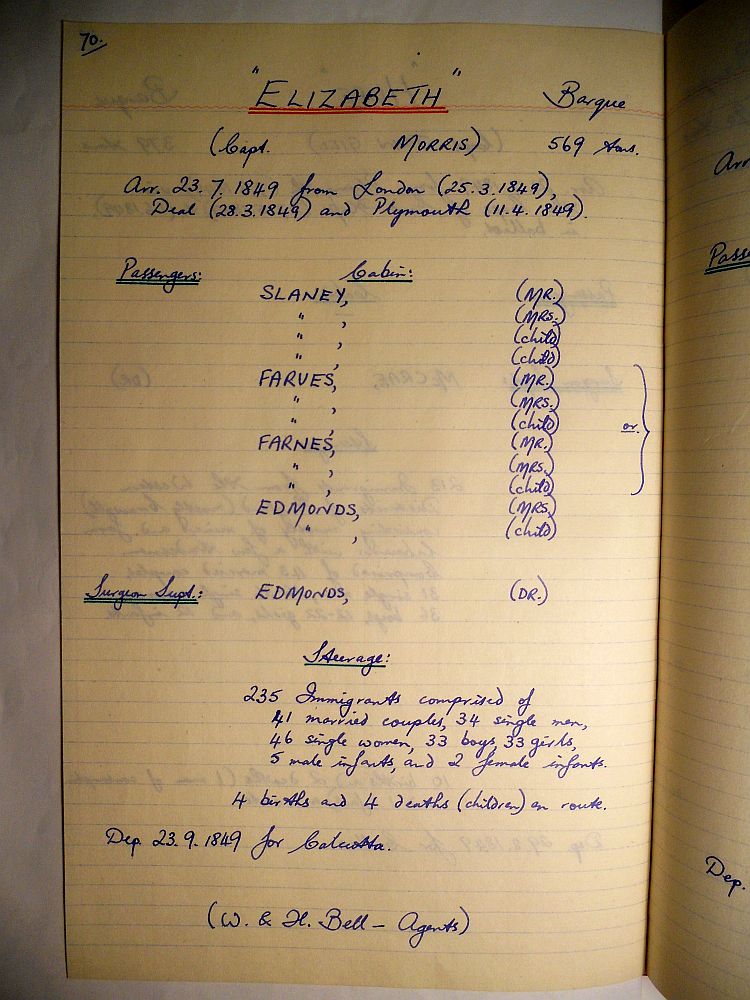 70.
"ELIZABETH" Barque
(Capt. MORRIS) 569 tons.
Arr. 23.7.1849 from London (25.3.1849),
Deal (28.3.1849) and Plymouth (11.4.1849).
Passengers: Cabin:
SLANEY, (MR.)
" , (MRS.)
" , (child)
" , (child)
FARVES, (MR.)
" , (MRS.)
" , (child) or
FARNES, (MR.)
" , (MRS.)
" , (child)
EDMONDS, (MRS.)
" , (child)
Surgeon Supt.: EDMONDS, (DR.)
Steerage:
235 Immigrants comprised of
41 married couples, 34 single men,
46 single women, 33 boys, 33 girls,
5 male infants, and 2 female infants.
4 births and 4 deaths (children) en route.
Dep. 23.9.1849 for Calcutta.
(W. & H. Bell - Agents)
Arr
Passe
Dep.